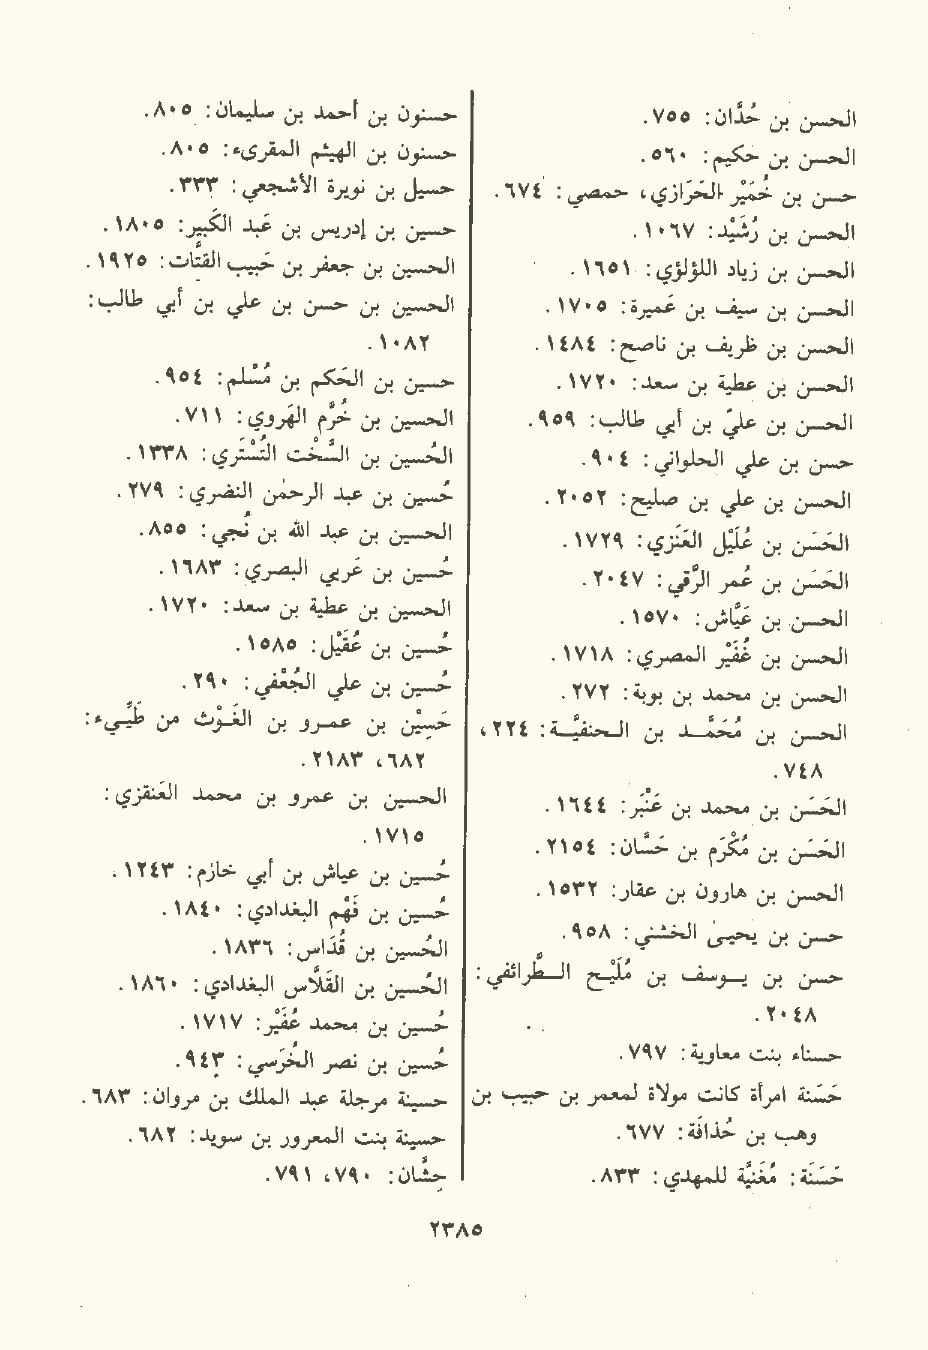 الحسن بن حُدَّان: ٧٥٥.
الحسن بن حكيم: ٥٦٠.
حسن بن خُمَيْر الحَرَازي، حمصي: ٦٧٤.
الحسن بن رُشَيْد: ١٠٦٧.
الحسن بن زياد اللؤلؤي: ١٦٥١.
الحسن بن سيف بن عَميرة: ١٧٠٥.
الحسن بن ظريف بن ناصح: ١٤٨٤.
الحسن بن عطية بن سعد: ١٧٢٠.
الحسن بن عليّ بن أبي طالب: ٩٥٩.
حسن بن علي الحلواني: ٩٠٤.
الحسن بن علي بن صليح: ٢٠٥٢.
الحَسَن بن عُلَيْل العَنَزي: ١٧٢٩.
الحَسَن بن عُمر الرَّقي: ٢٠٤٧.
الحسن بن عَيَّاش: ١٥٧٠.
الحسن بن غُفَيْر المصري: ١٧١٨.
الحسن بن محمد بن بوبة: ٢٧٢.
الحسن بن مُحَمَّد بن الحنفيَّة: ٢٢٤،
٧٤٨.
الحَسَن بن محمد بن عَنْبَر: ١٦٤٤.
الحَسَن بن مُكْرَم بن حَسَّان: ٢١٥٤.
الحسن بن هارون بن عقار: ١٥٣٢.
حسن بن يحيىٰ الخشني: ٩٥٨.
حسن بن يوسف بن مُلَيْح الطَّرائفي:
٢٠٤٨.
حسناء بنت معاوية: ٧٩٧.
حَسَنة امرأة كانت مولاة لمعمر بن حبيب بن
وهب بن حُذافَة: ٦٧٧.
حَسَنَة: مُغَنيَّة للمهدي: ٨٣٣.
حسنون بن أحمد بن سليمان: ٨٠٥.
حسنون بن الهيثم المقرىء: ٨٠٥.
حسيل بن نويرة الأشجعي: ٣٣٣.
حسين بن إدريس بن عَبد الكَبير: ١٨٠٥.
الحسين بن جعفر بن حَبيب القتَّات: ١٩٢٥.
الحسين بن حسن بن علي بن أبي طالب:
١٠٨٢.
حسين بن الحَكم بن مُسْلم: ٩٥٤.
الحسين بن خُرَّم الهَروي: ٧١١.
الحُسين بن السَّخْت التُسْتَري: ١٣٣٨.
حُسين بن عبد الرحمٰن النضري: ٢٧٩.
الحسين بن عبد الله بن نُجي: ٨٥٥.
حُسين بن عَربي البصري: ١٦٨٣.
الحسين بن عطية بن سعد: ١٧٢٠.
حُسين بن عُقَيْل: ١٥٨٥.
حُسين بن علي الجُعْفي: ٢٩٠.
حَسِيْن بن عمرو بن الغَوْث من طَيِّيء:
٦٨٢، ٢١٨٣.
الحسين بن عمرو بن محمد العَنقزي:
١٧١٥.
حُسين بن عياش بن أبي خازم: ١٢٤٣.
حُسين بن فَهْم البغدادي: ١٨٤٠.
الحُسين بن قُدَاس: ١٨٣٦.
الحُسين بن القَلَّاس البغدادي: ١٨٦٠.
حُسين بن محمد عُفَيْر: ١٧١٧.
حُسين بن نصر الخُرَسي: ٩٤٣.
حسينة مرجلة عبد الملك بن مروان: ٦٨٣.
حسينة بنت المعرور بن سويد: ٦٨٢.
حِشَّان: ٧٩٠، ٧٩١.
٢٣٨٥